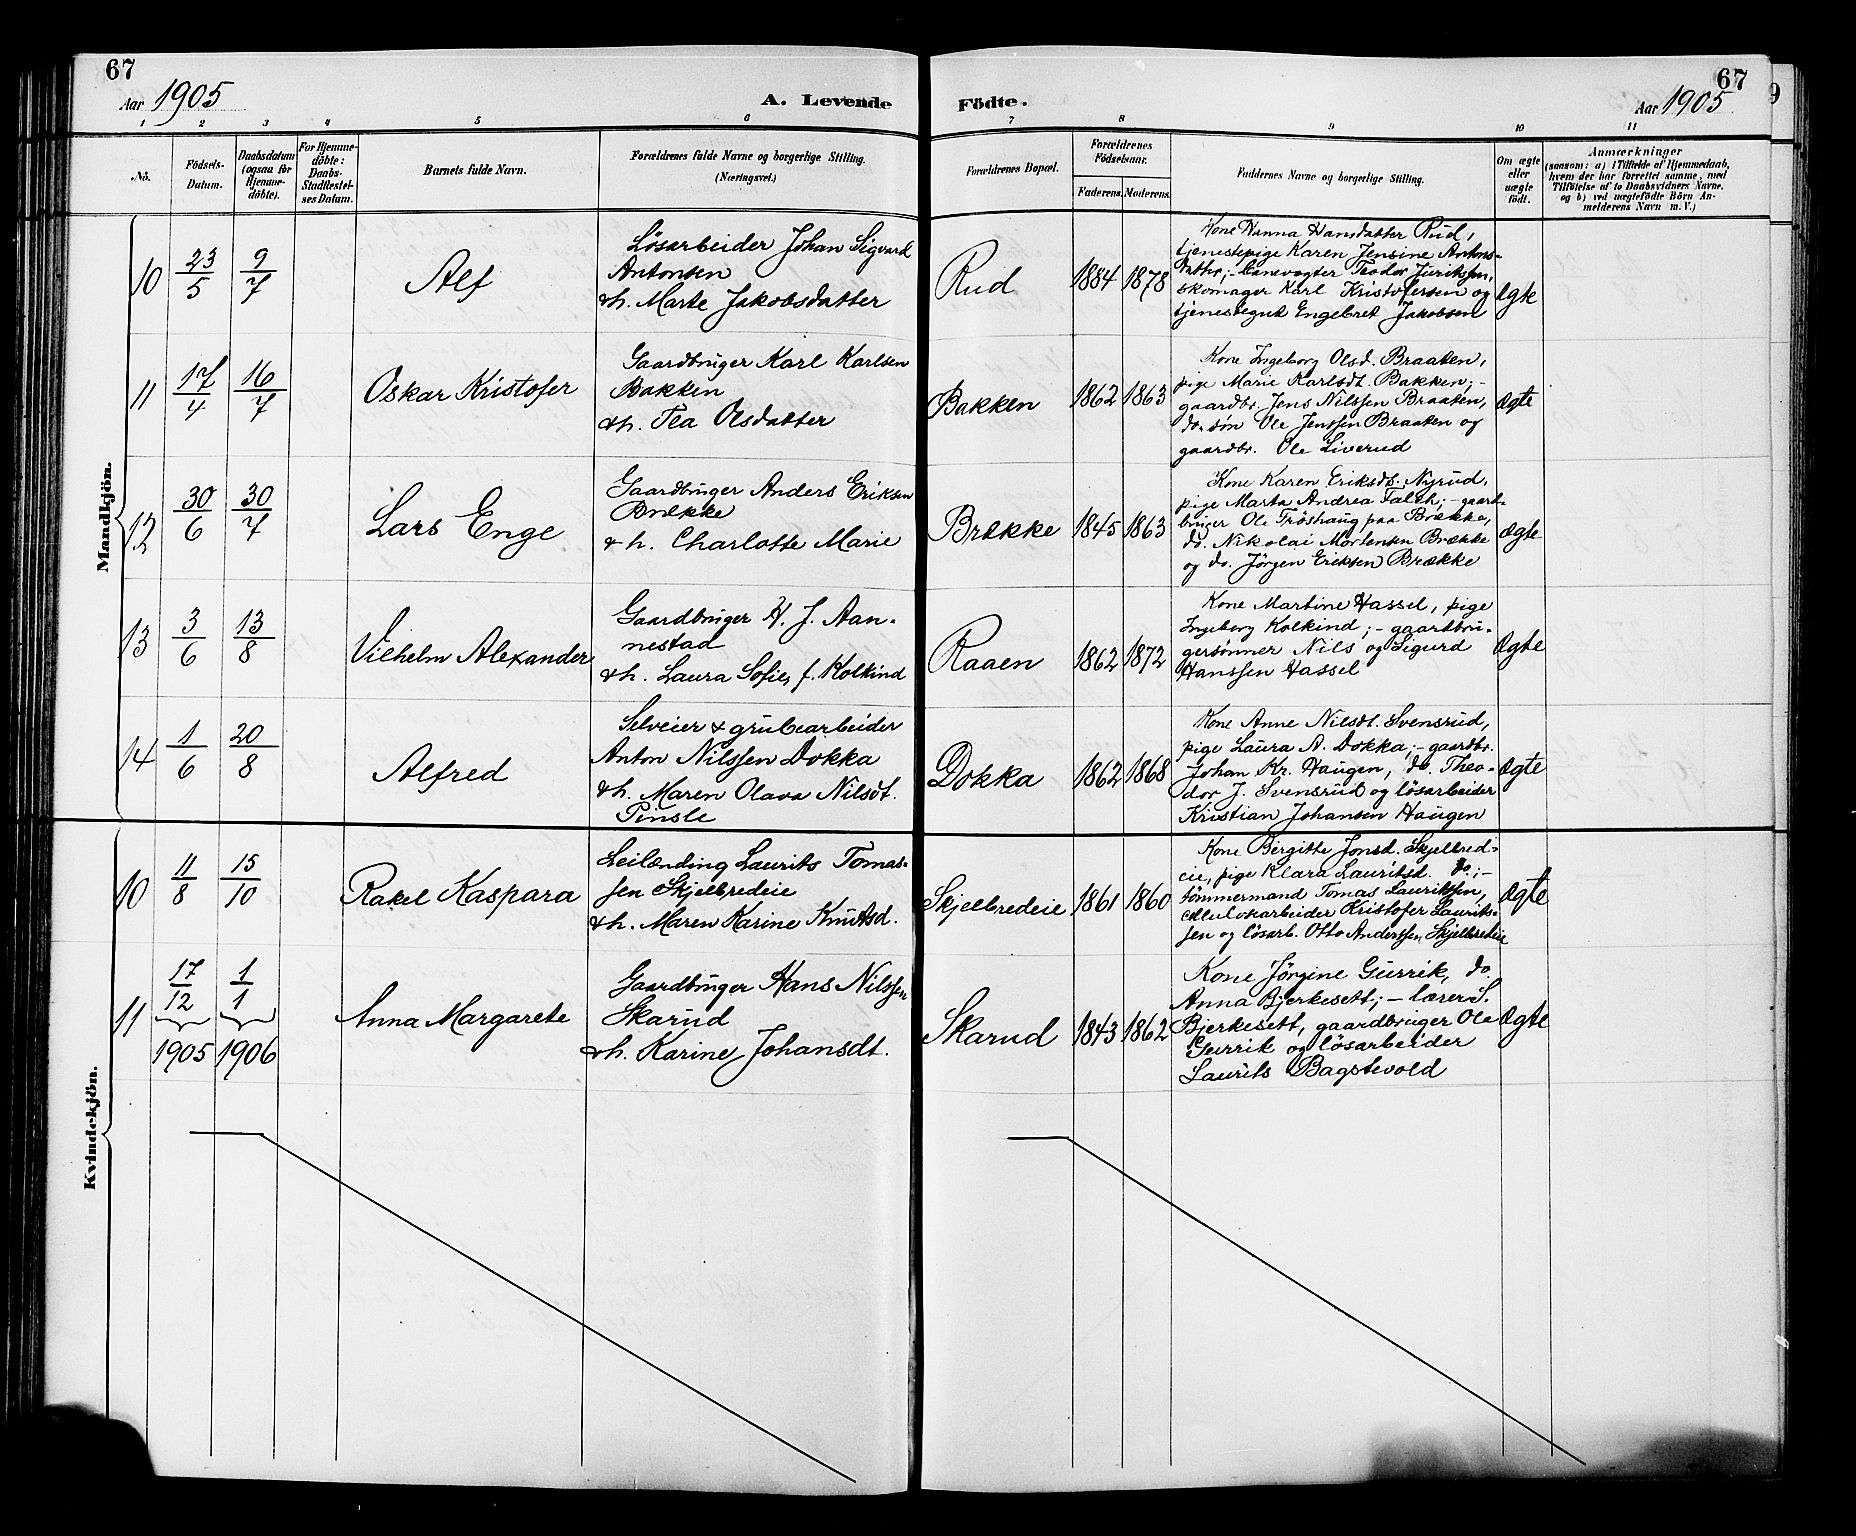 67
Aar 1905
A. Levende
1 2 3 4 5 6
No.
Födsels-
Datum.
Daabsdatum
(ogsaa for
Hjemme-
döbte).
For Hjemme-
döbte:
Daabs-
Stadfæstel-
ses Datum.
Barnets fulde Navn.
Forældrenes fulde Navne og borgerlige Stilling.
(Næringsvei.)
Födte.
67
Aar 1905
9
7 8 9 10 11
Forældrenes Bopæl.
Forældrenes
Födselsaar.
Faderens. Moderens.
Faddernes Navne og borgerlige Stilling.
Om ægte
eller
uægte
födt.
Anmærkninger
(saasom: a) i Tilfælde af Hjemmedaab,
hvem der har forrettet samme, med
Tilföielse af to Daabsvidners Navne.
og b) ved uægtefödte Börn An-
melderens Navn m. V.)
Mandkjön.
10
23/5
9/7
Alf
Løsarbeider Johan Sigvard
Antonsen
& h. Marte Jakobsdatter
Rud
1884 1878
Kone Hanna Hansdatter Rud,
tjenestepige Karen Jensine Antons-
datter; - banevogter Teodor Juritssen,
skomager Karl Kristofersen og
tjenestegut Engebret Jakobsen
Ægte
11
17/4
16/7
Oskar Kristofer
Gaardbruger Karl Karlsen
Bakken
& h. Tea Olsdatter
Bakken
1862 1863
Kone Ingeborg Olsd. Braaten,
pige Marie Karlsdt. Bakken; -
gaardbr. Jens Nilssen Braaten,
do. søn Ole Jenssen Braaten og
gaardbr. Ole Liverud
Ægte
12
30/6
30/7
Lars Enge
Gaardbruger Anders Eriksen
Brække
& h. Charlotte Marie
Brække
1845 1863
Kone Karen Eriksdt. Nyrud,
pige Marta Andrea Falch; - gaard-
bruger Ole Frøshaug paa Brække,
do. Nikolai Mortensen Brække
og do. Jørgen Eriksen Brække
Ægte
13
3/6
13/8
Vilhelm Alexander
Gaardbruger H. J. Aan-
nestad
& h. Laura Sofie, f. Kolkind
Raaen
1862 1872
Kone Martine Hassel, pige
Ingeborg Kolkind; - gaardbru-
gersønner Nils og Sigurd
Hanssen Hassel
Ægte
14
1/6
20/8
Alfred
Selveier & grubearbeider
Anton Nilssen Dokka
& h. Maren Olava Nilsdt.
Pinsle
Dokka
1862 1868
Kone Anne Nilsdt. Svensrud,
pige Laura A. Dokka; - gaardbr.
Johan Kr. Haugen, do. Theo-
dor J. Svensrud og løsarbeider
Kristian Johansen Haugen
Ægte
Kvindekjön.
10
11/8
15/10
Rakel Kaspara
Leilænding Laurits Tomas-
sen Skjelbredeie
& h. Maren Karine Knutsd.
Skjelbredeie
1861 1860
Kone Birgitte Jonsd. Skjelbred-
eie, pige Klara Lauritsd. do.; -
tømmermand Tomas Lauritssen,
cellulosarbeider Kristofer Laurits-
sen og løsarb. Otto Anderssen Skjelbredeie
Ægte
11
17/12
1905
1/1
1906
Anna Margarete
Gaardbruger Hans Nilssen
Skarud
& h. Karine Johansdt.
Skarud
1843 1862
Kone Jørgine Gurrik, do.
Anna Bjerkesett; - lærer S.
Bjerkesett, gaardbruger Ole
Gurrik og løsarbeider
Laurits Bagstevold
Ægte